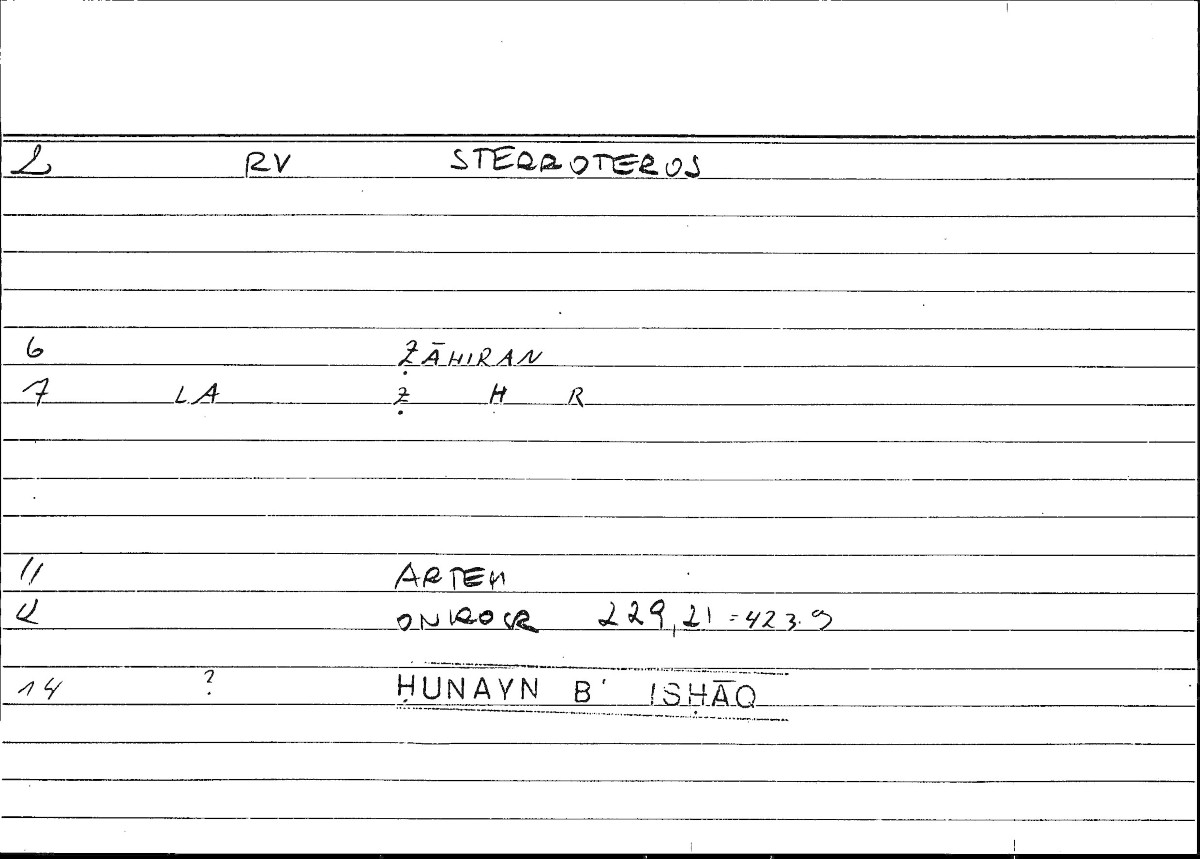 2 RV STERROTEROS
6 ẒĀHIRAN
7 LA Ẓ H R
11 ARTEM
12 ONIROCR 229,21=423.9
14 ? ḤUNAYN B' ISḤĀQ